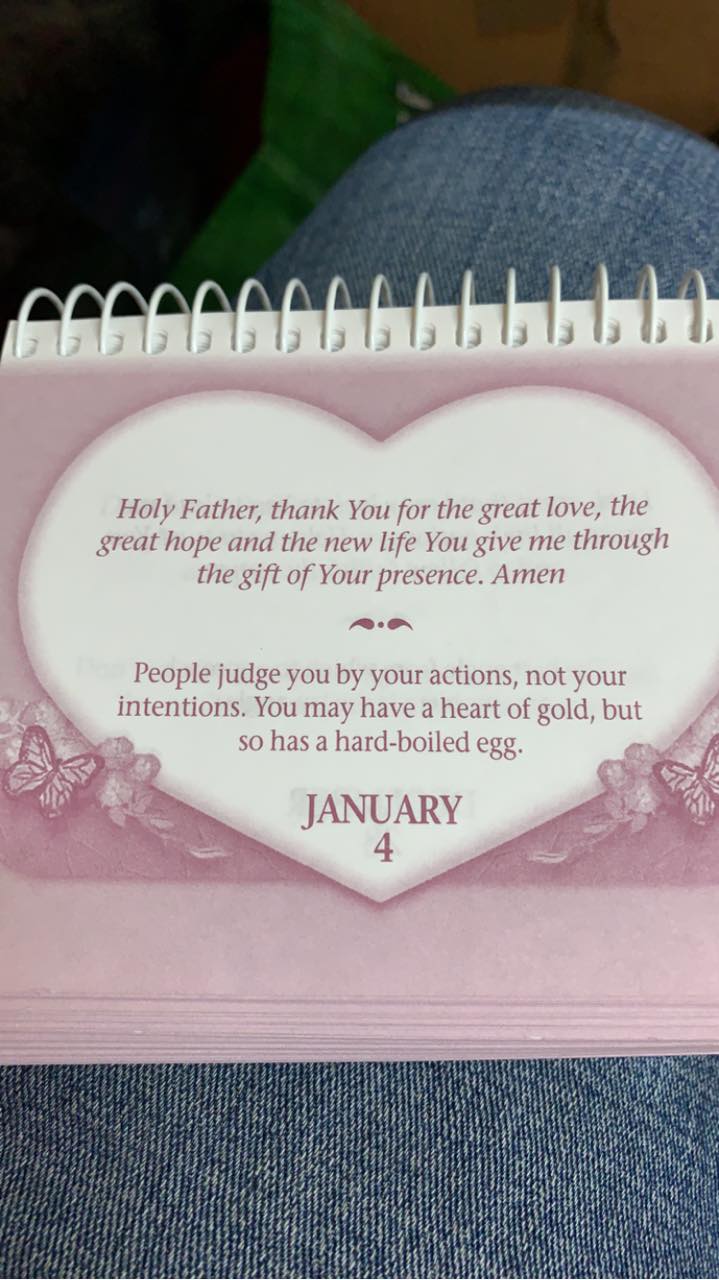 Holy Father, thank You for the great love, the
great hope and the new life You give me through
the gift of Your presence. Amen
People judge you by your actions, not your
intentions. You may have a heart of gold, but
so has a hard-boiled egg.
JANUARY
4